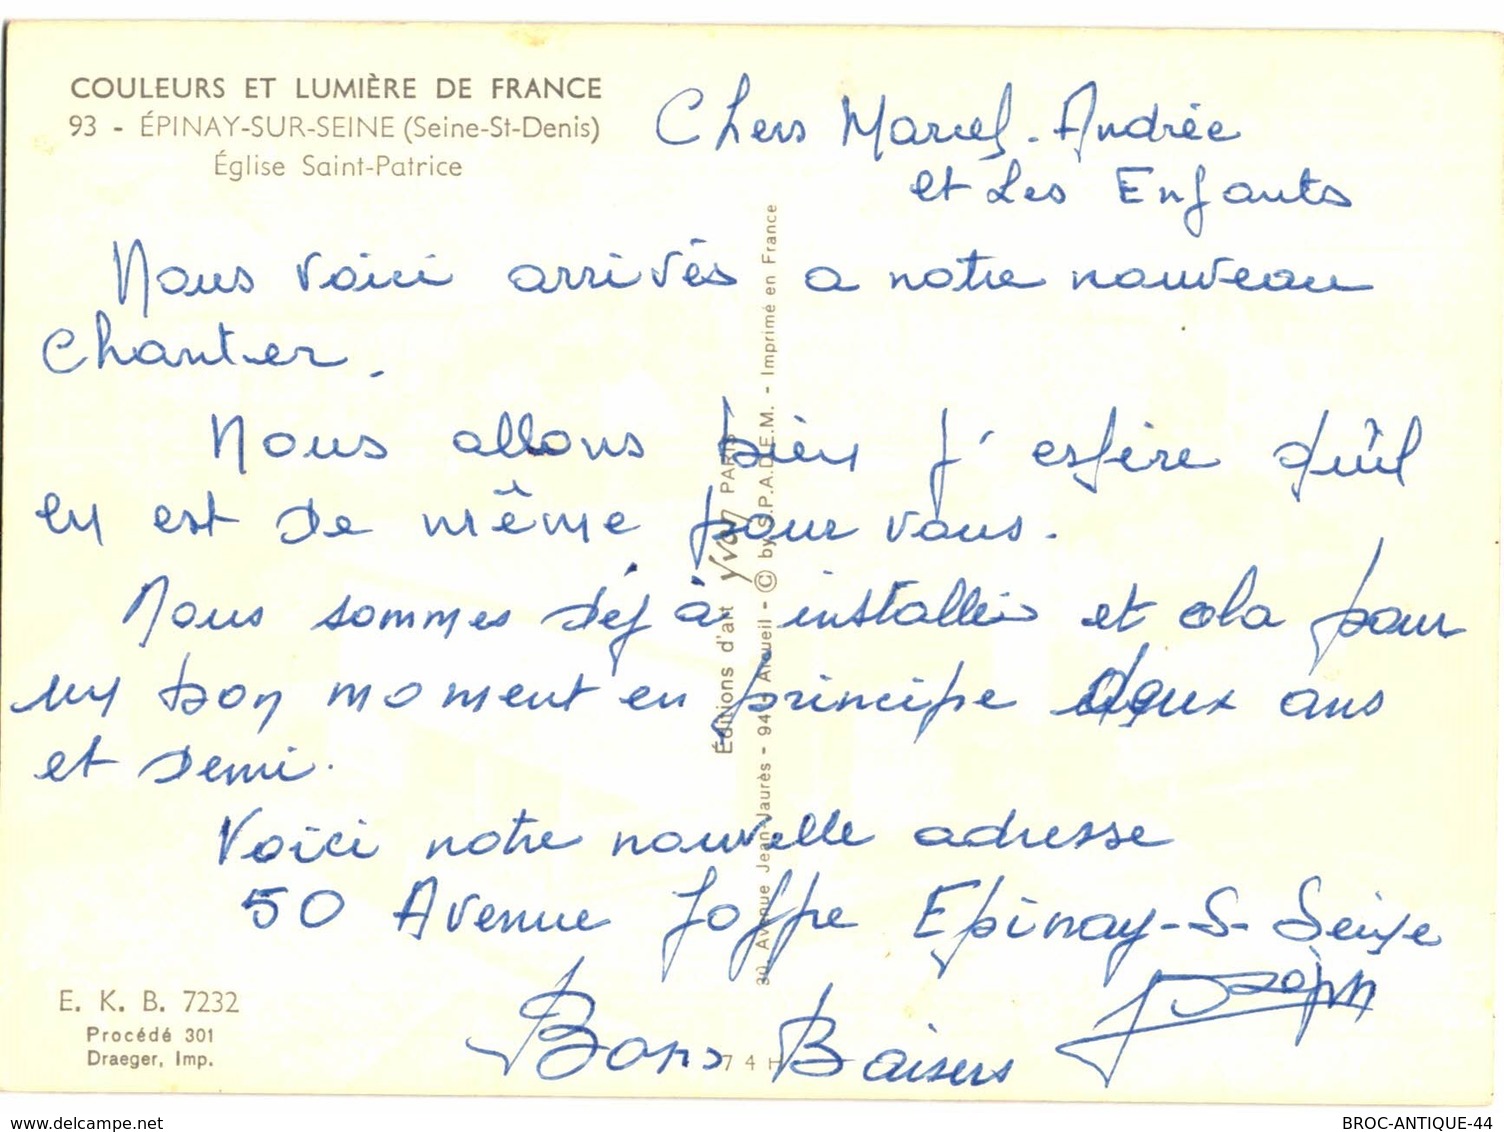 COULEURS ET LUMIÈRE DE FRANCE
93 - ÉPINAY-SUR-SEINE (Seine-St-Denis)
Église Saint-Patrice
Chers Marcel. Andrée
et Les Enfants
Nous voici arrivés a notre nouveau
chantier.
Nous allons bien j'espère qu'il
en est de même pour vous.
Nous sommes déjà installés et cela pour
un bon moment en principe deux ans
et demi.
Voici notre nouvelle adresse
50 Avenue Joffre Epinay-S-Seine
Bons Baisers
Joseph
Éditions d'art Yvon PARIS
30, Avenue Jean-Jaurès - 94 - Arcueil - © by S.P.A.D.E.M. - Imprimé en France
E. K. B. 7232
Procédé 301
Draeger, Imp.
7 4 H
delcampe.net
BROC-ANTIQUE-44